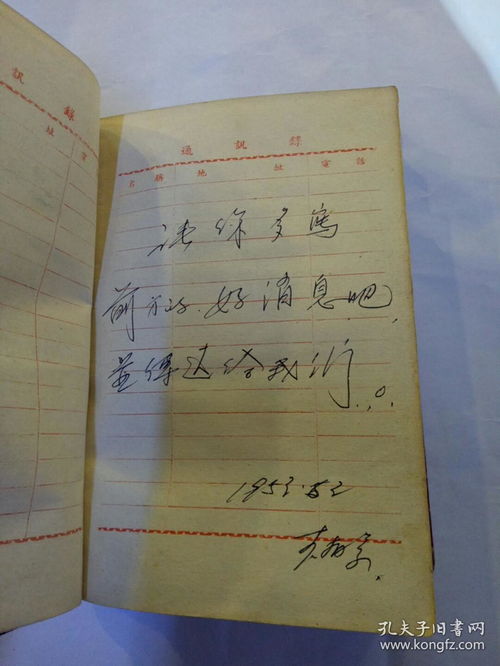 訊 錄
址 電
通 訊 錄
名 稱 地 址 電 話
请你多写
前方的好消息吧,
並傳达给我们
孔夫子旧书网
www.kongfz.com